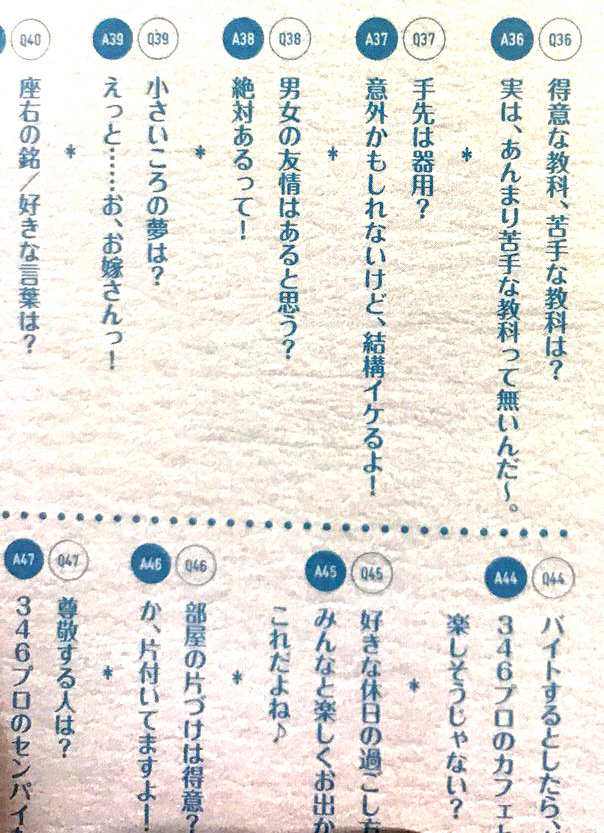 Q36
得意な教科、苦手な教科は?
A36
実は、あんまり苦手な教科って無いんだ〜。
*
Q37
手先は器用?
A37
意外かもしれないけど、結構イケるよ!
*
Q38
男女の友情はあると思う?
A38
絶対あるって!
*
Q39
小さいころの夢は?
A39
えっと……お、お嫁さんっ!
*
Q40
座右の銘/好きな言葉は?
Q44
バイトするとしたら、
A44
346プロのカフェ
楽しそうじゃない?
*
Q45
好きな休日の過ごし方
A45
みんなと楽しくお出か
これだよね♪
*
Q46
部屋の片づけは得意?
A46
か、片付いてますよ!
*
Q47
尊敬する人は?
A47
346プロのセンパイ